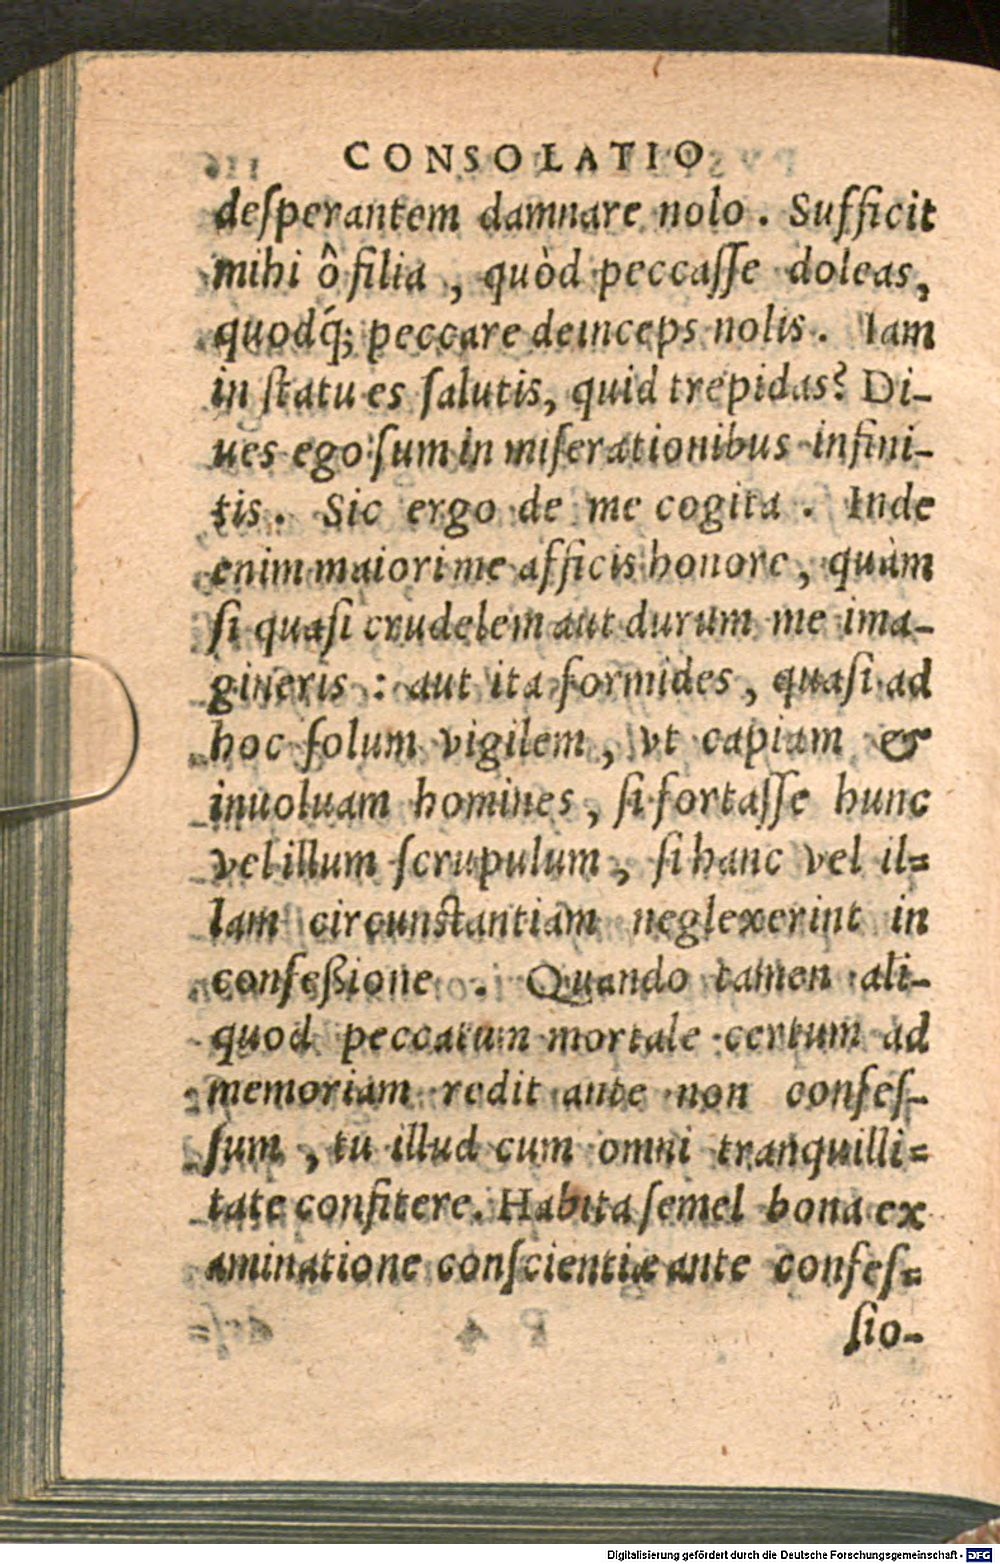 CONSOLATIO
deſperantem damnare nolo. Sufficit
mihi ô filia, quòd peccaſſe doleas,
quodq́; peccare deinceps nolis. Iam
in ſtatu es ſalutis, quid trepidas? Di-
ues ego ſum in miſerationibus infini-
tis. Sic ergo de me cogita. Inde
enim maiori me afficis honore, quàm
ſi quaſi crudelem aut durum me ima-
gineris: aut ita formides, quaſi ad
hoc ſolum vigilem, vt capiam &
inuoluam homines, ſi fortaſſe hunc
vel illum ſcrupulum, ſi hanc vel il=
lam circunſtantiam neglexerint in
confeßione. Quando tamen ali-
quod peccatum mortale certum ad
memoriam redit ante non confeſ-
ſum, tu illud cum omni tranquilli=
tate confitere. Habita ſemel bona ex
aminatione conſcientiæ ante confeſ=
ſio-
Digitalisierung gefördert durch die Deutsche Forschungsgemeinschaft - DFG